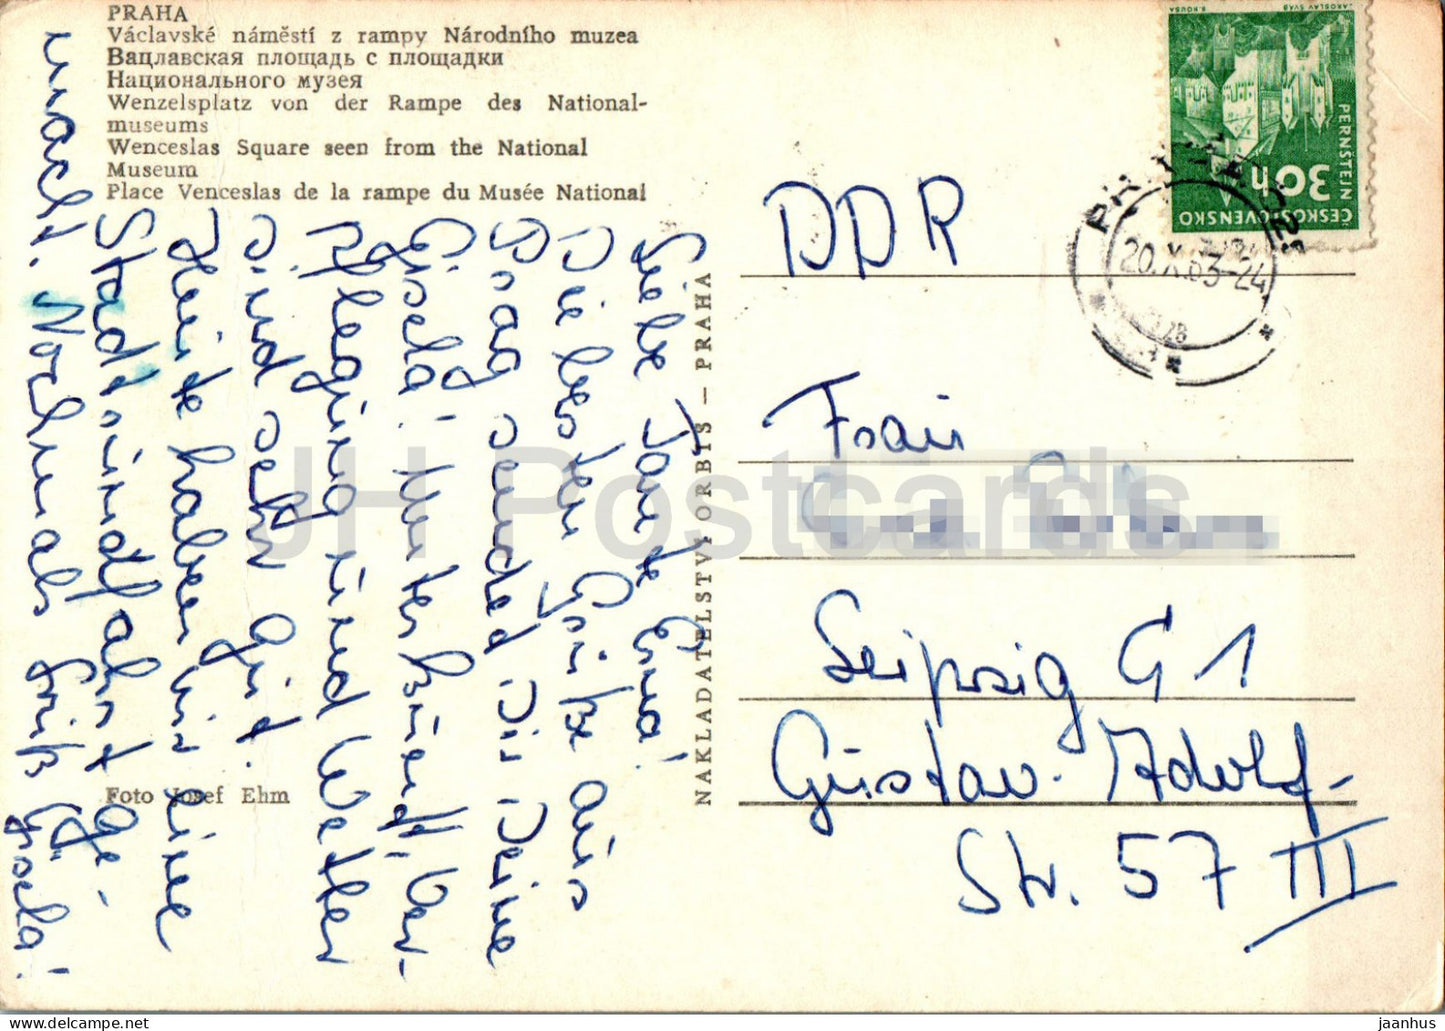 PRAHA
Václavské náměstí z rampy Národního muzea
Вацлавская площадь с площадки
Национального музея
Wenzelsplatz von der Rampe des National-
museums
Wenceslas Square seen from the National
Museum
Place Venceslas de la rampe du Musée National
Liebe Tante Erna!
Die besten Grüße aus
Prag sendet Dir Deine
Gisela! Unterkunft, Ver-
pflegung und Wetter
sind sehr gut.
Heute haben wir eine
Stadtrundfahrt ge-
macht. Nochmals Gruß Gisela!
Foto Josef Ehm
NAKLADATELSTVÍ ORBIS — PRAHA
DDR
Frau
Leipzig C 1
Gustav-Adolf-
Str. 57 III
ČESKOSLOVENSKO
30h
PERNŠTEJN
JAROSLAV ŠVÁB
20.X.63-24
JH Postcards
delcampe.net
jaanhus